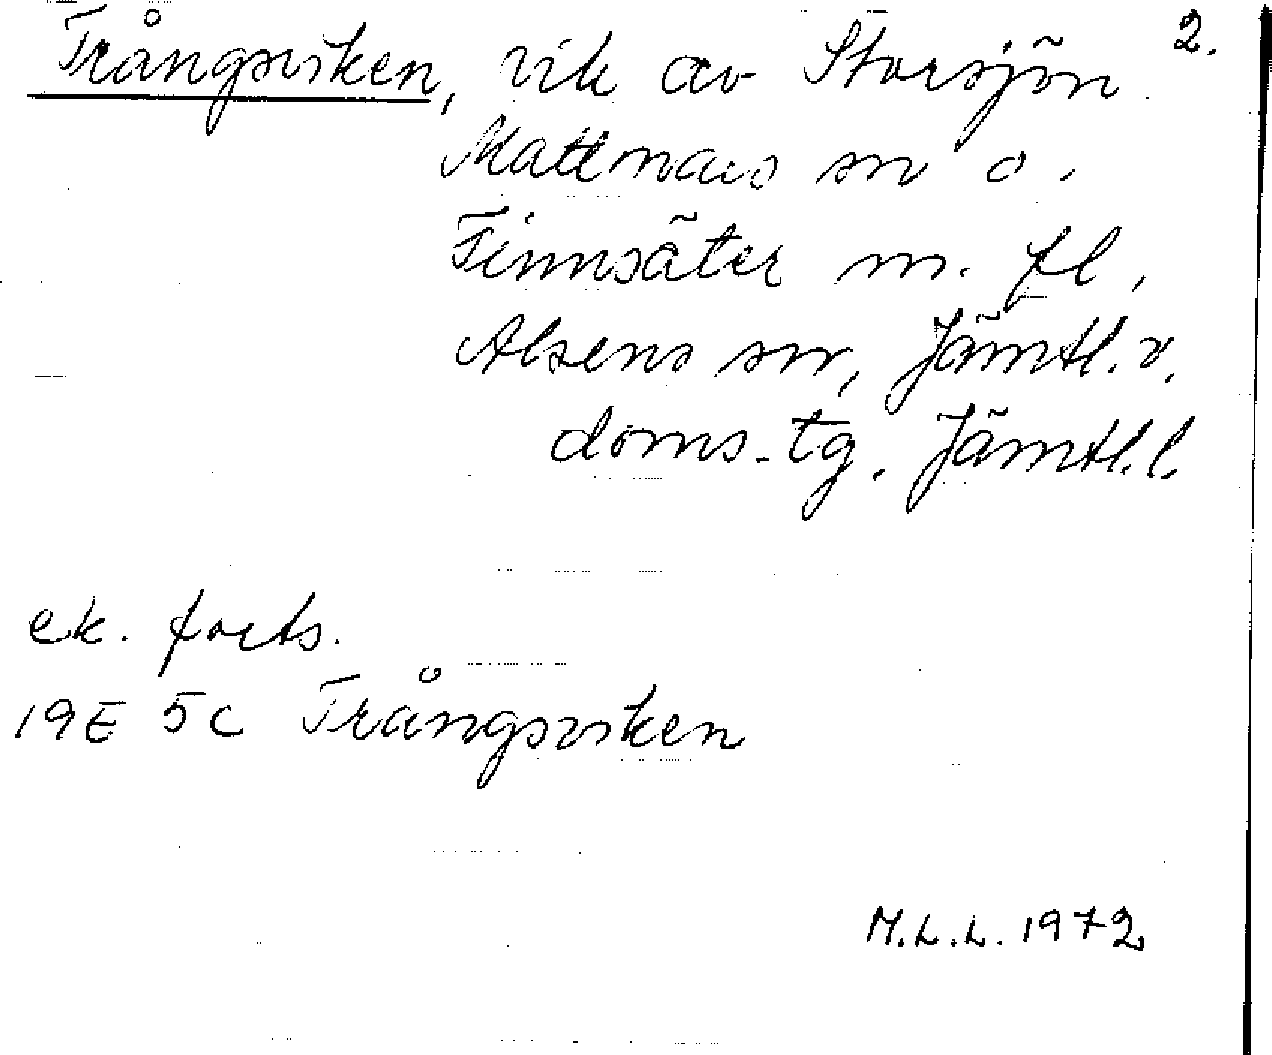 Trångsviken, vik av Storsjön 2.
Mattmars sn o.
Finnsäter m. fl,
Alsens sn, Jämtl. v.
doms. tg. Jämtl. l.
ek. forts.
19E 5c Trångsviken
M.L.L. 1972